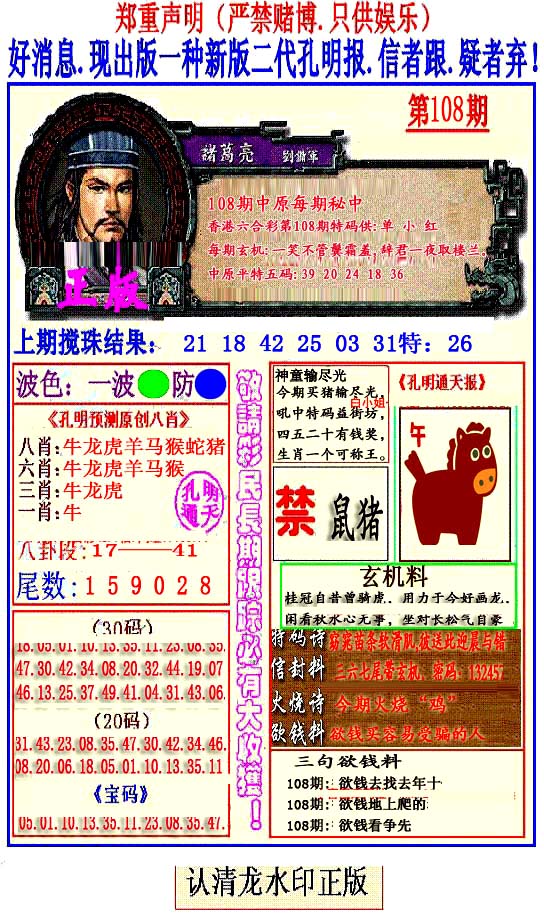 郑重声明（严禁赌博.只供娱乐）
好消息.现出版一种新版二代孔明报.信者跟.疑者弃!
第108期
諸葛亮 劉備軍
108期中原每期秘中
香港六合彩第108期特码供:单 小 红
每期玄机:一笑不管鬓霜盖,辞君一夜取楼兰.
中原平特五码:39 20 24 18 36
正版
上期搅珠结果: 21 18 42 25 03 31特: 26
波色: 一波 防
《孔明预测原创八肖》
八肖:牛龙虎羊马猴蛇猪
六肖:牛龙虎羊马猴
三肖:牛龙虎
一肖:牛
孔明通天
八卦段:17——41
尾数:159028
(30码)
18.05.01.10.13.35.11.23.08.35.
47.30.42.34.08.20.32.44.19.07
46.13.25.37.49.41.04.31.43.06.
(20码)
31.43.23.08.35.47.30.42.34.46.
08.20.06.18.05.01.10.13.35.11
《宝码》
05.01.10.13.35.11.23.08.35.47.
敬請彩民長期跟踪必有大收獲！
神童输尽光
今期买猪输尽光,
白小姐
吼中特码益街坊,
四五二十有钱奖,
生肖一个可称王。
《孔明通天报》
午
禁 鼠猪
玄机料
桂冠自昔曾骑虎. 用力于今好画龙.
闲看秋水心无事, 坐对长松气自豪
特码诗 窈窕苗条软滑肌,被送此迎晨与错
信封料 三六七尾带玄机, 密码: 132457
火烧诗 今期火烧“鸡”
欲钱料 欲钱买容易受骗的人
三句欲钱料
108期: 欲钱去找去年十
108期: 欲钱地上爬的
108期: 欲钱看争先
认清龙水印正版